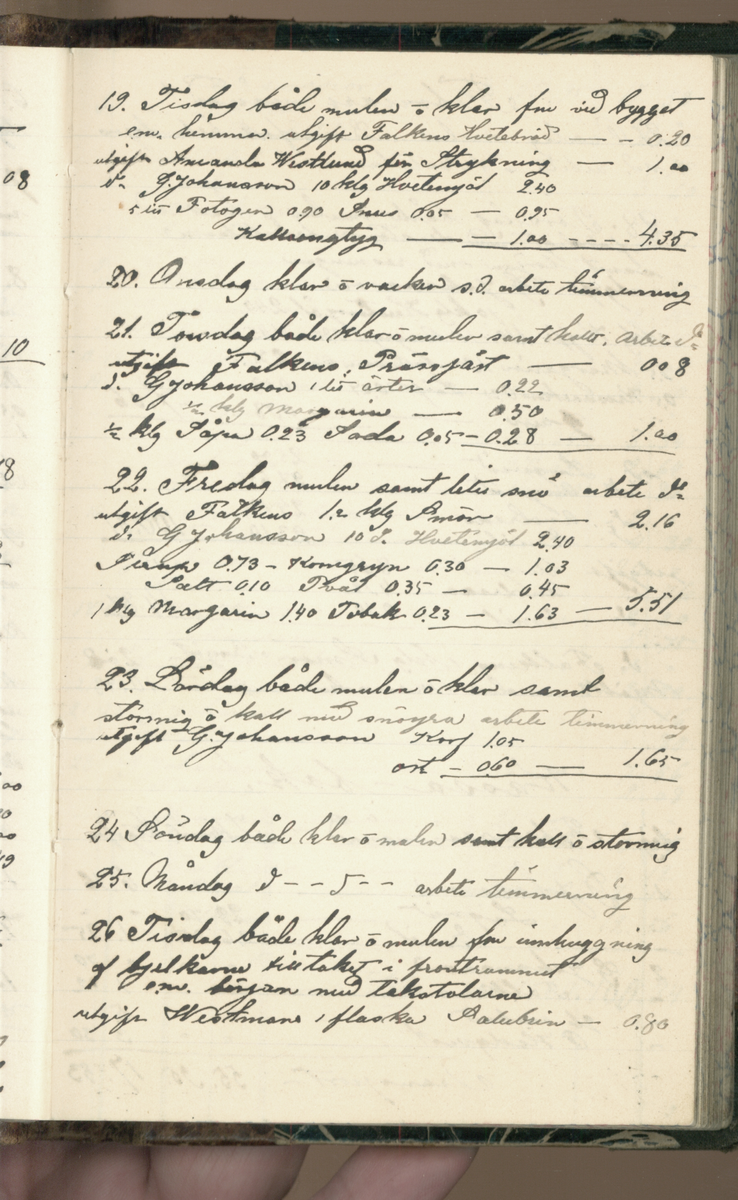 08
10
18
19
19. Tisdag både mulen o klar fm vid bygget
em. hemma. utgift Falkens Hvetebröd — - 0.20
utgift Amanda Westlund för Strykning — 1.00
d:o G. Johansson 10 klg Hvetemjöl 2.40
5 lit Fotogen 0.90 Snus 0.05 — 0.95
Kalsongtyg — 1.00 - - - - 4.35
20. Onsdag klar o vacker s.d. arbete timmerning
21. Torsdag både klar o mulen samt kallt. arbete d:o
utgift Falkens, Prässjäst — 0.08
d:o G Johansson 1 lit ärter — 0.22
½ klg Margarin — 0.50
½ klg Såpa 0.23 Soda 0.05 - 0.28 — 1.00
22. Fredag mulen samt litet snö arbete d:o
utgift Falkens 1.2 klg Smör — 2.16
d:o G Johansson 10 d:o Hvetemjöl 2.40
Sirap 0.73 - Korngryn 0.30 — 1.03
Salt 0.10 Tvål 0.35 — 0.45
1 klg Margarin 1.40 Tobak 0.23 — 1.63 — 5.51
23. Lördag både mulen o klar samt
stormig o kall med snöyra arbete timmerning
utgift G. Johansson Korf 1.05
ost - 0.60 — 1.65
24 Söndag både klar o mulen samt kall o stormig
25. Måndag d - - o - - arbete timmerning
26 Tisdag både klar o mulen fm inhuggning
af bjelkarne till taket i frontrummet
e.m. början med takstolarne
utgift Westmans 1 flaska Salubrin — 0.80